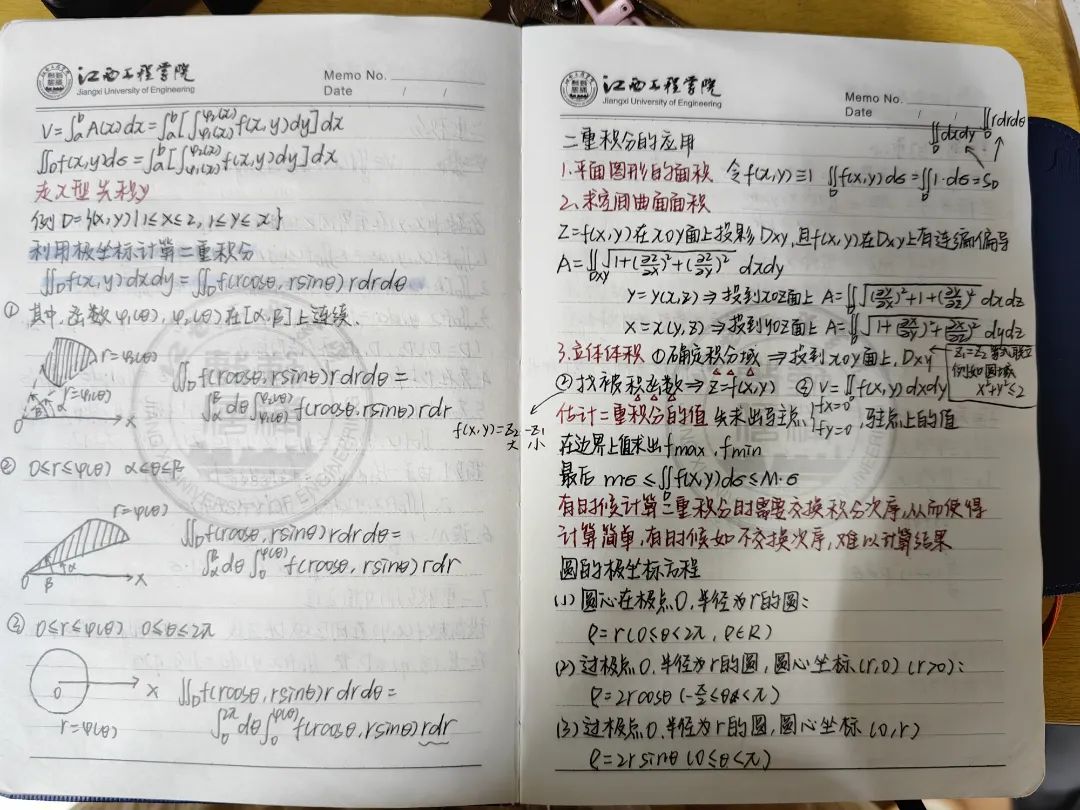 江西工程学院
Jiangxi University of Engineering
Memo No.
Date / /
V=∫ₐᵇA(x)dx=∫ₐᵇ[∫_{φ₁(x)}^{φ₂(x)}f(x,y)dy]dx
∬_D f(x,y)dσ=∫ₐᵇ[∫_{φ₁(x)}^{φ₂(x)}f(x,y)dy]dx
走X型 先积y
例D={(x,y)|1≤x≤2,1≤y≤x}
利用极坐标计算二重积分
∬_D f(x,y)dxdy=∬_D f(rcosθ,rsinθ)rdrdθ
① 其中,函数φ₁(θ),φ₂(θ)在[α,β]上连续.
r=φ₂(θ)
r=φ₁(θ)
β α
0 x
∬_D f(rcosθ,rsinθ)rdrdθ=
∫_α^β dθ∫_{φ₁(θ)}^{φ₂(θ)} f(rcosθ,rsinθ)rdr
② 0≤r≤φ(θ) α≤θ≤β
r=φ(θ)
α
0 β x
∬_D f(rcosθ,rsinθ)rdrdθ=
∫_α^β dθ∫₀^{φ(θ)} f(rcosθ,rsinθ)rdr
③ 0≤r≤φ(θ) 0≤θ≤2π
0 x
r=φ(θ)
∬_D f(rcosθ,rsinθ)rdrdθ=
∫₀^{2π}dθ∫₀^{φ(θ)} f(rcosθ,rsinθ)rdr
江西工程学院
Jiangxi University of Engineering
Memo No.
Date / /
∬_D dxdy ∬_D rdrdθ
二重积分的应用
1.平面图形的面积 令f(x,y)≡1 ∬_D f(x,y)dσ=∬_D 1·dσ=S_D
2、求空间曲面面积
Z=f(x,y)在xoy面上投影Dxy,且f(x,y)在Dxy上有连续偏导
A=∬_{Dxy} √(1+(∂z/∂x)²+(∂z/∂y)²) dxdy
y=y(x,z)⇒投到xoz面上 A=∬_D √((∂y/∂x)²+1+(∂y/∂z)²) dxdz
x=x(y,z)⇒投到yoz面上 A=∬_D √(1+(∂x/∂y)²+(∂x/∂z)²) dydz
3.立体体积 ①确定积分域 ⇒投到xoy面上,Dxy
Z₁=Z₂
例如圆域
x²+y²≤2
②找被积函数⇒Z=f(x,y) ④ V=∬_D f(x,y)dxdy
f(x,y)=Z₂-Z₁
大 小
估计二重积分的值 先求出驻点{fx=0 fy=0,驻点上的值
在边界上值求出fmax,fmin
最后 mσ≤∬_D f(x,y)dσ≤M·σ
有时候计算二重积分时需要交换积分次序,从而使得
计算简单,有时候如不交换次序,难以计算结果
圆的极坐标方程
(1)圆心在极点O,半径为r的圆:
ρ=r(0≤θ<2π,ρ∈R)
(2)过极点O,半径为r的圆,圆心坐标(r,0)(r>0):
ρ=2rcosθ(-π/2≤θ<π)
(3)过极点O,半径为r的圆,圆心坐标(0,r)
ρ=2rsinθ(0≤θ<π)